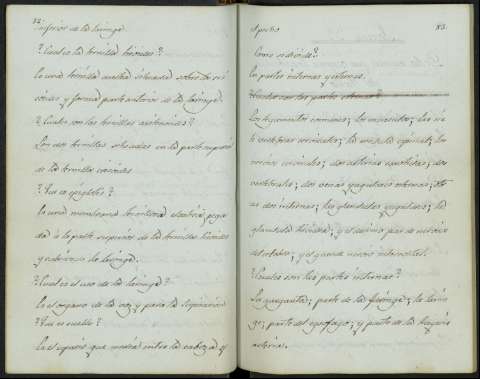 82.
inferior de la laringe.
? Cual es la ternilla tiroides?
Es una ternilla
y forma parte anterior de la laringe.
? Cuales son las ternillas aritenoides?
Son dos ternillas situadas en la parte superior
de la ternilla cricoides
? Que es epiglotis?
Es una membrana
da a la parte superior de la ternilla tiroides
y
? Cual es el uso de la laringe?
Es el organo de la voz y para la respiracion
? Que es cuello?
Es el espacio que media entre la cabeza y
83.
el pecho
Como se divide?
En partes internas y externas.
? Cuales son las partes externas?
Los tegumentos comunes; los musculos; las sie
te vertebras cervicales; la medula espinal; los
nervios cervicales; dos arterias carotidas; dos
vertebrales; dos venas yugulares externas; otr
as dos internas; las glandulas yugulares; la
glandula tiroides; y el octavo par de nervios
del celebro; y el gran nervio intercostal.
? Cuales son las partes internas?
La garganta; parte de la faringe; la larin
ge; parte del esofago; y parte de la traquia
arteria.